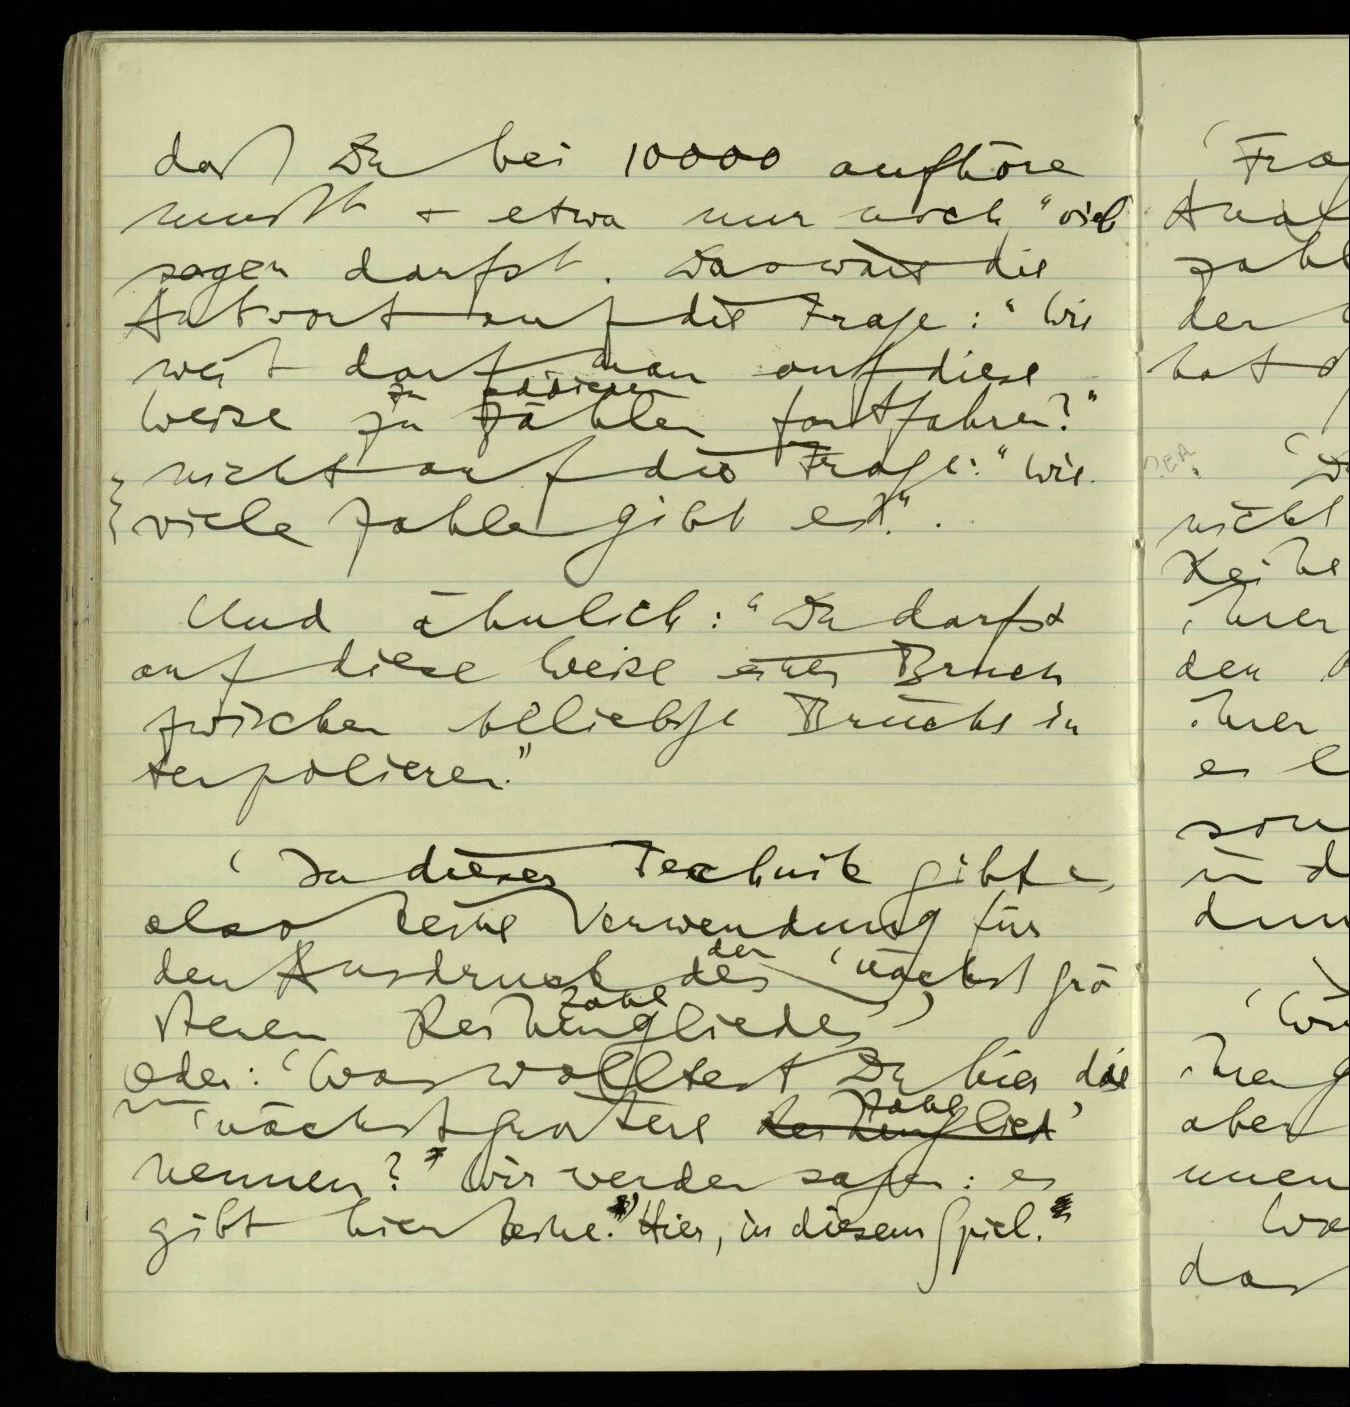 daß Du bei 10000 aufhören
mußt + etwa nur noch "viel
sagen darfst. Das wäre die
Antwort auf die Frage: "Wie
weit darf man auf diese
zu addieren
Weise zu zählen fortfahren?"
nicht auf die Frage: "Wie
viele Zahlen gibt es".
Und ähnlich: "Du darfst
auf diese Weise einen Bruch
zwischen beliebige Brüche in
terpolieren."
'In dieser Technik gibt es
also keine Verwendung für
der
den Ausdruck des 'nächst grö
Zahl
sseren Reihengliedes'
oder: 'Was wolltest Du hier die
Zahl
'nächst grössere Reihenglied'
nennen?" Wir werden sagen: es
gibt hier keine." Hier, in diesem Spiel."
Fra
zahl
der
hat
nicht
Reihe
ihrer
den
ihrer
es
in d
aber